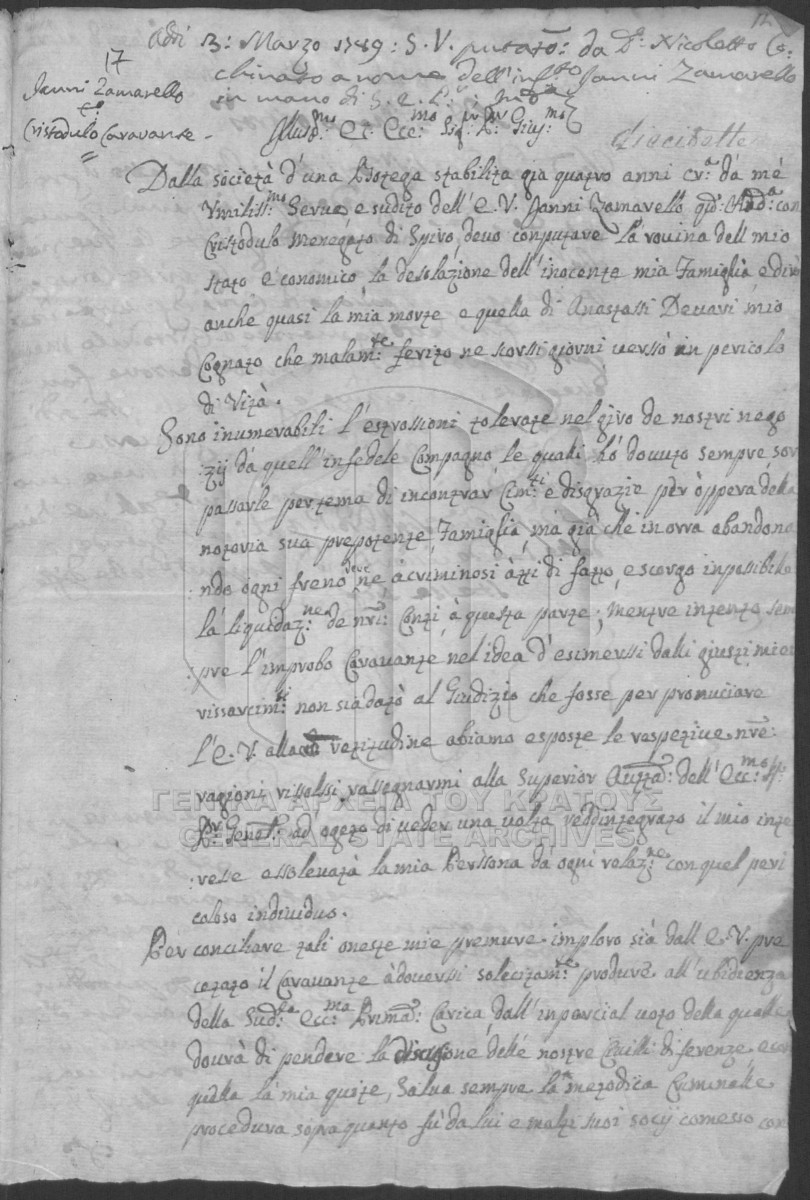 17
Janni Zamarello
e
Cristodulo Caravante
Adi 13: Marzo 1789: S. V. putato: da D. Nicoletto Co:
chinato a nome dell'inf.to Janni Zamarello
in mano di S. E.
Illus.mo Ecc.mo
diecisette
Dalla società d'una Botega stabilita già quatro anni cr.a da mè
Umiliss.mo Servo e sudito dell'E. V. Janni Zamarello con
Cristodulo Meregato di Spiro, devo conputare la rovina dell mio
stato economico, la desolazione dell'inocente mia Famiglia e dirò
anche quasi la mia morte e quella di Anastassi Devari mio
Cognato che malam.te ferito ne scorssi giorni verssò in pericolo
di Vità.
Sono inumerabili l'estrossioni tolerate nel giro de nostri nego
:zij dà quell'infedele Compagno, le quali hò dovuto sempre sor
passarle per tema di incontrar Cim.ti e disgrazie pèr òppera della
notoria sua prepotente Famiglia, mà già chè in orra abandona
:ndo ogni freno deve ne à criminosi àtti di fatto, e scorgo inpossibile
là liquidaz.ne de nri: Conti à questa parte, mentre intento sem
:pre l'improbo Caravante nel idea d'esimerssi dalli giusti miei
rissarcim.ti non sia dato al Giudizio che fosse per pronuciare
l'E. V. alla retitudine abiamo esposte le respetive nre:
ragioni rissolssi rassegnarmi alla Superior Autta: dell'Ecc.mo
Gen: ad ogeto di veder una volta reddintegrato il mio inte
:resse e ssolevata la mia Perssona da ogni relaz.ne con quel peri
coloso individuo.
Per conciliare tali oneste mie premure imploro sià dall E. V. pre
cetato il Caravante à doverssi solecitam.te produre all'ubidienza
della Sud.ta Ecc.ma Prima: Carica dall'inparcial voto della qualle
dovrà di pendere la discusione delle nostre Civilli di ferenze e con
quella la mia quite, Salva sempre la metodica Criminalle
procedura sopra quanto fù da lui e molti suoi socij comesso con
ΓΕΝΙΚΑ ΑΡΧΕΙΑ ΤΟΥ ΚΡΑΤΟΥΣ
GENERAL STATE ARCHIVES